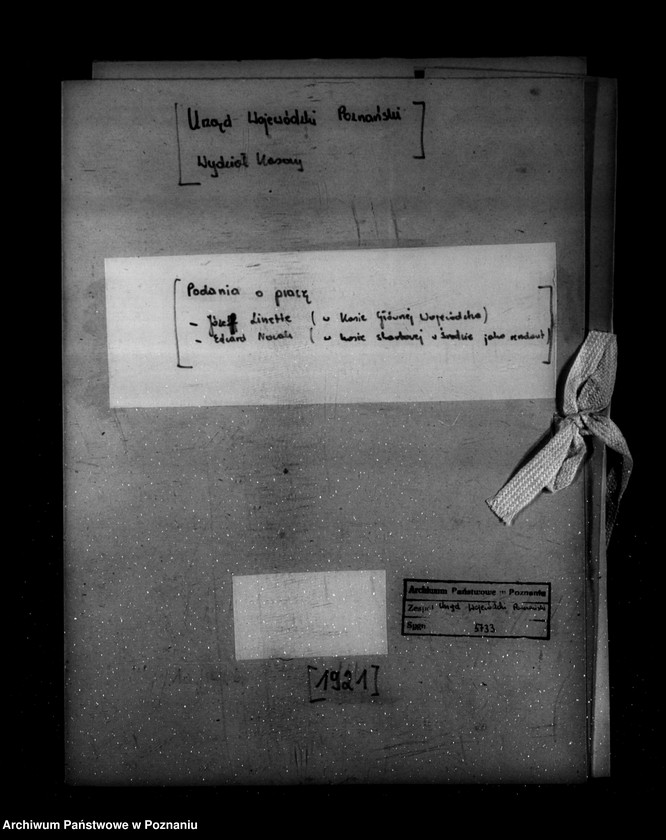 [Urząd Wojewódzki Poznański]
Wydział Kasowy
[Podania o pracę
- Józef Linette (w Kasie Głównej Wojewódzka)
- Edward Nowak (w kasie skarbowej w Środzie jako rendant)]
Archiwum Państwowe w Poznaniu
Zespół Urząd Wojewódzki Poznański
Sygn 5733
[1921]
Archiwum Państwowe w Poznaniu